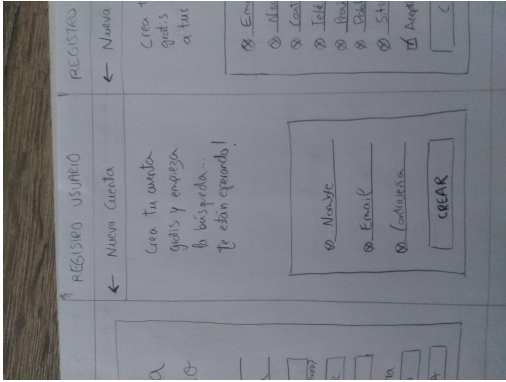 REGISTRO USUARIO
← Nueva Cuenta
Crea tu cuenta
gratis y empieza
la búsqueda...
Te están esperando!
Nombre
Email
Contraseña
CREAR
REGISTRO
← Nueva
Crea t
gratis
a tus
Em
No
Con
Telé
Pobl
Acep
C
a
o